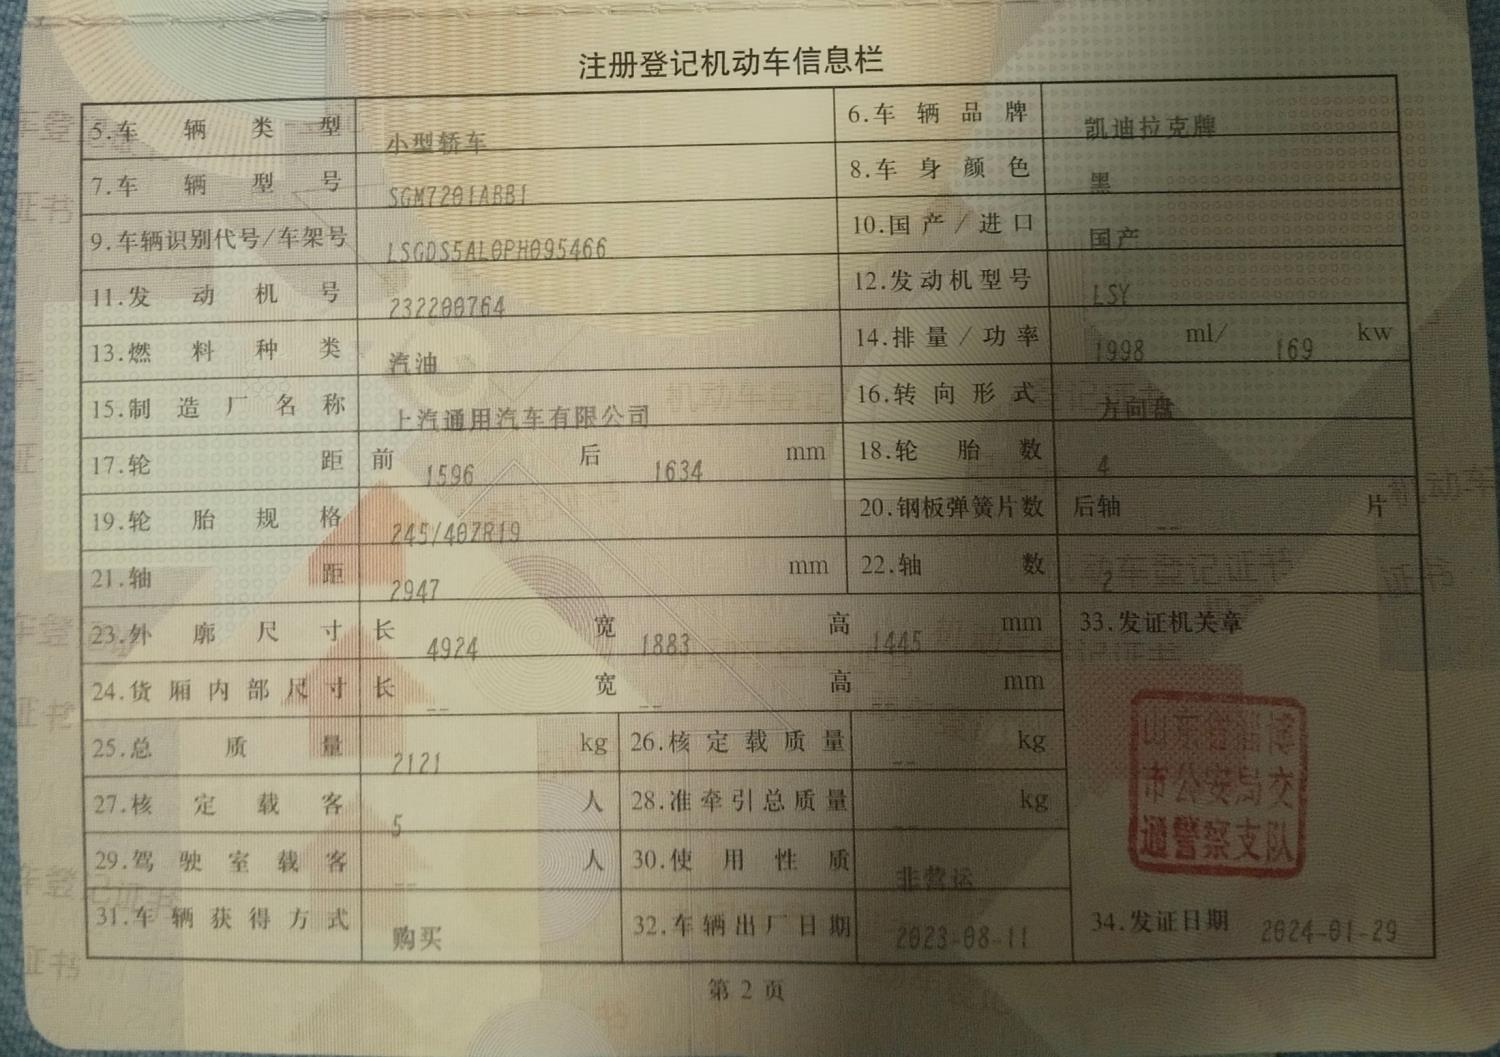 注册登记机动车信息栏
5.车辆类型 小型轿车 6.车辆品牌 凯迪拉克牌
7.车辆型号 SGM7201ABB1 8.车身颜色 黑
9.车辆识别代号/车架号 LSGDS5AL0PH095466 10.国产/进口 国产
11.发动机号 232200764 12.发动机型号 LSY
13.燃料种类 汽油 14.排量/功率 1998 ml/ 169 kw
15.制造厂名称 上汽通用汽车有限公司 16.转向形式 方向盘
17.轮距 前 1596 后 1634 mm 18.轮胎数 4
19.轮胎规格 245/40ZR19 20.钢板弹簧片数 后轴 -- 片
21.轴距 2947 mm 22.轴数 2
23.外廓尺寸 长 4924 宽 1883 高 1445 mm 33.发证机关章
24.货厢内部尺寸 长 -- 宽 -- 高 -- mm
25.总质量 2121 kg 26.核定载质量 -- kg
27.核定载客 5 人 28.准牵引总质量 -- kg
29.驾驶室载客 -- 人 30.使用性质 非营运
31.车辆获得方式 购买 32.车辆出厂日期 2023-08-11 34.发证日期 2024-01-29
山东省淄博
市公安局交
通警察支队
第 2 页